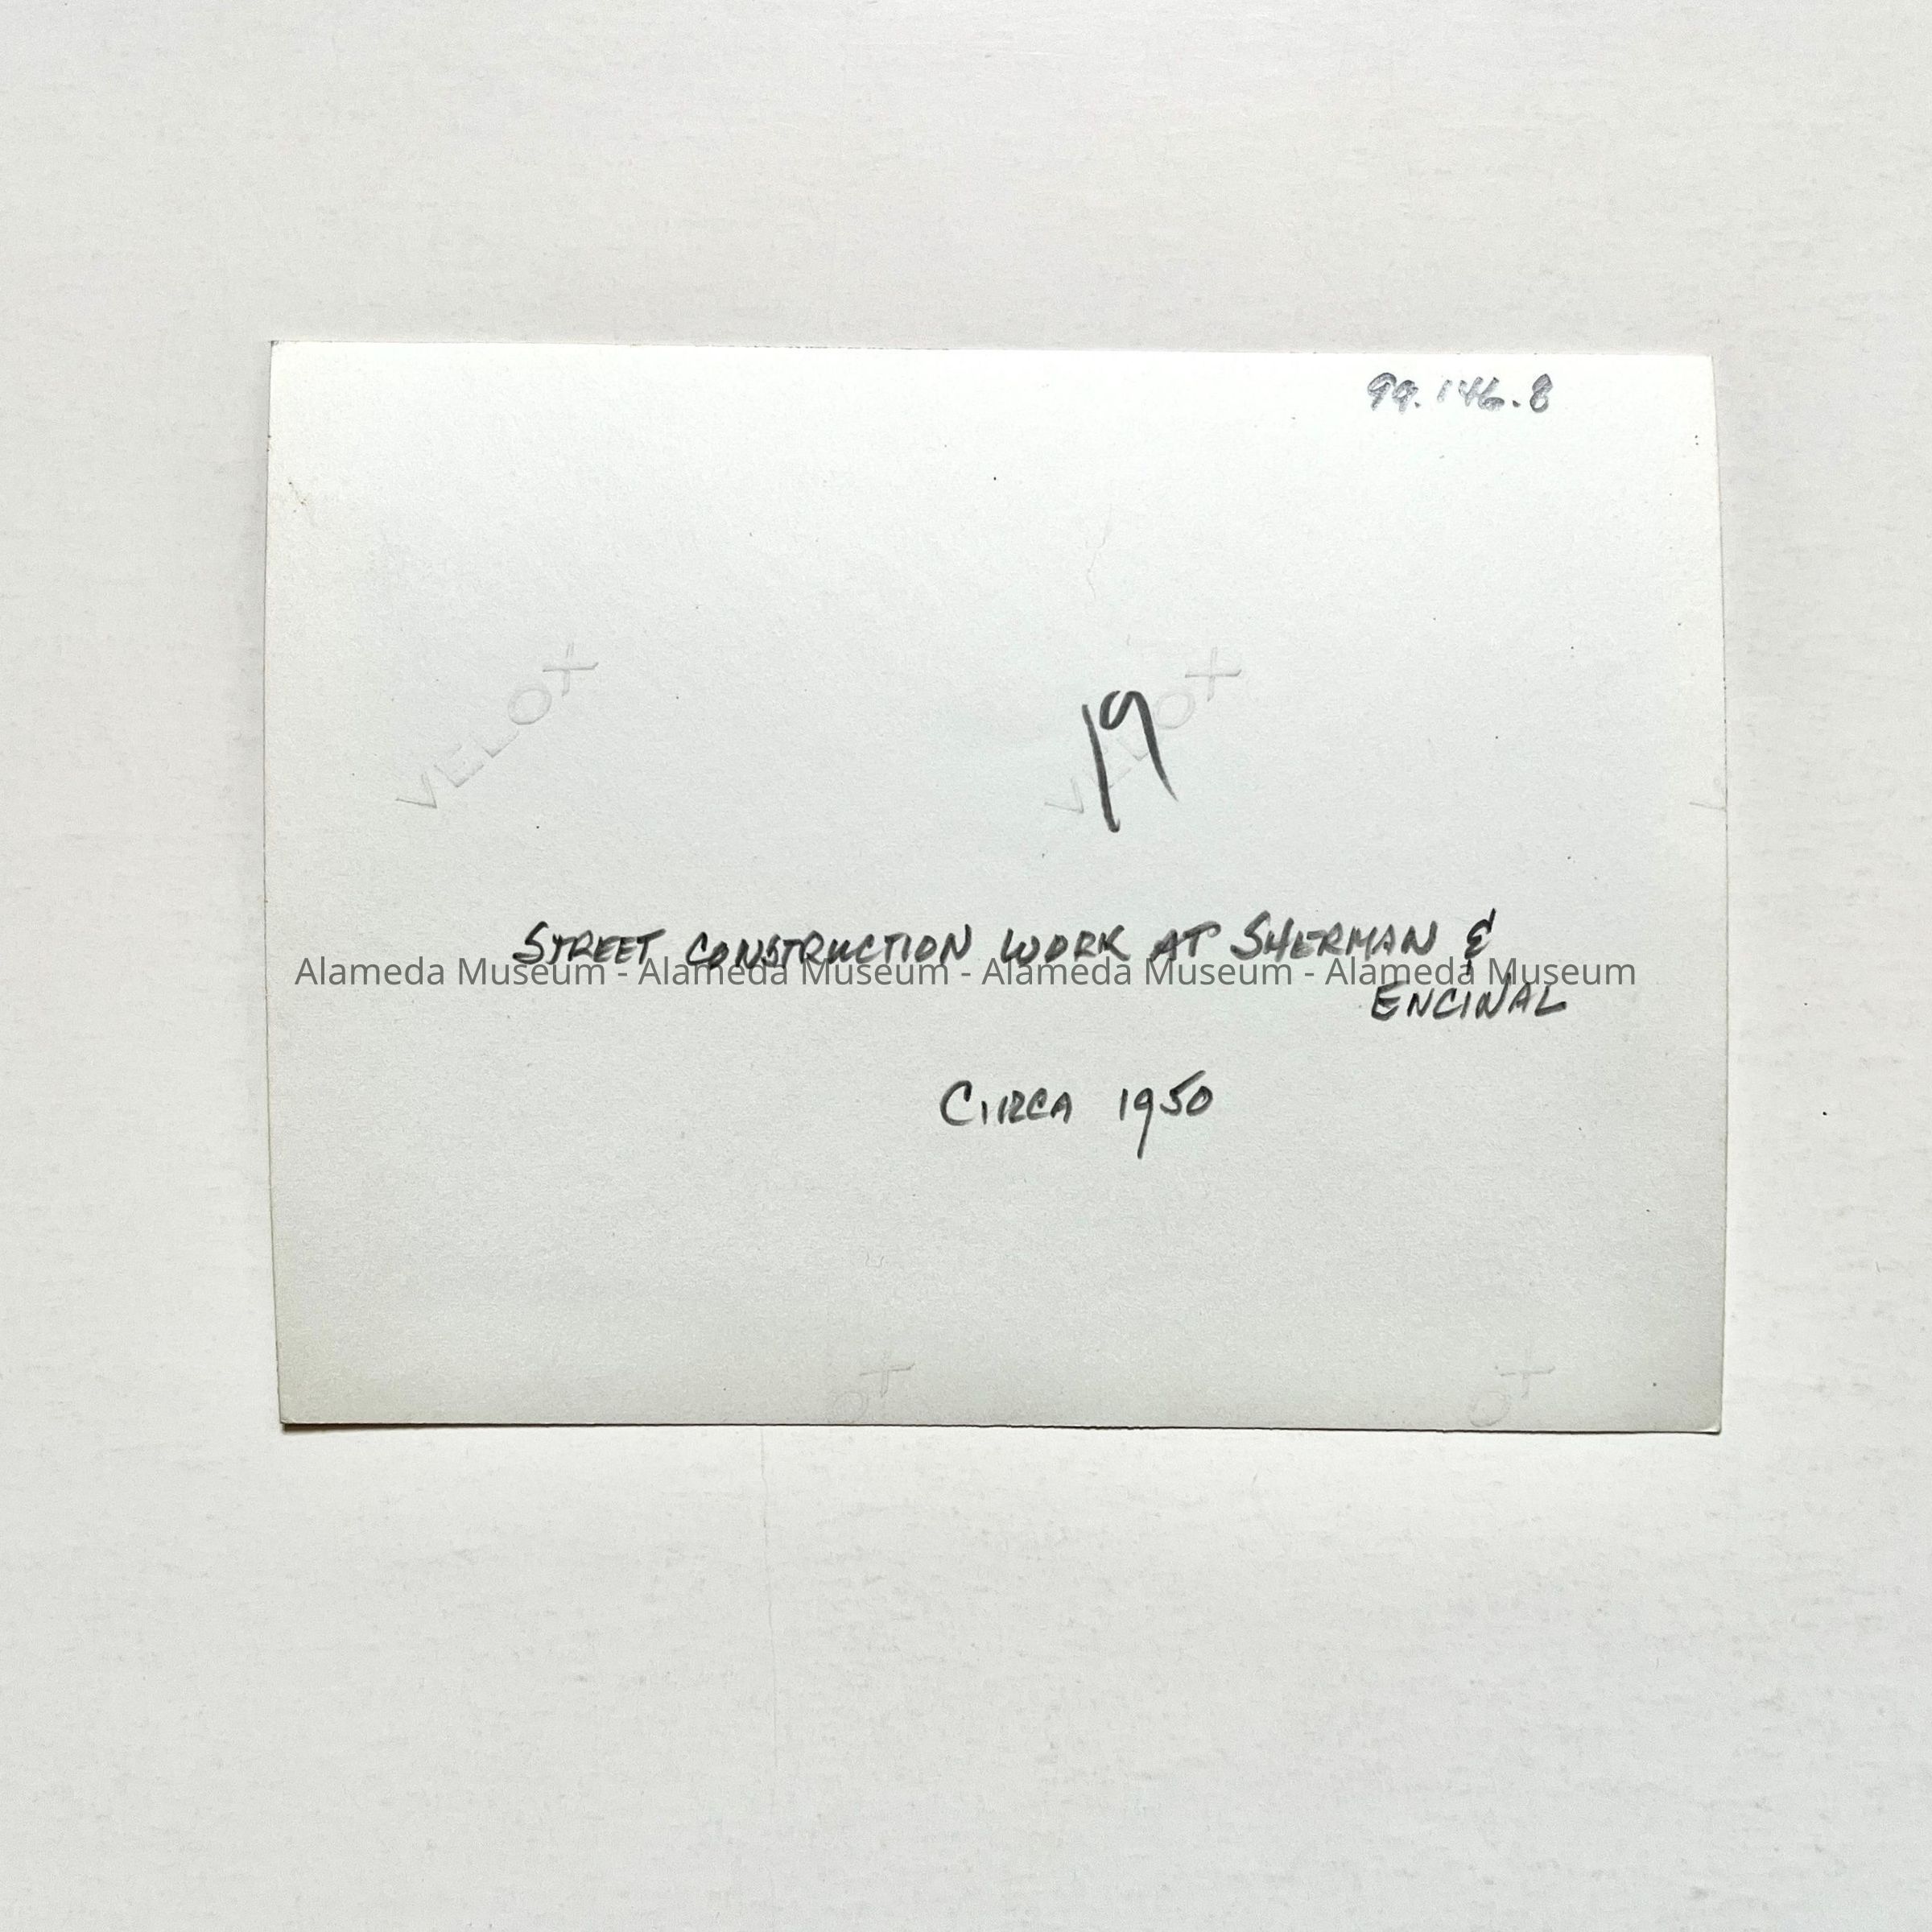 99.146.8
VELOX
VELOX
19
STREET CONSTRUCTION WORK AT SHERMAN &
Alameda Museum - Alameda Museum - Alameda Museum - Alameda Museum
ENCINAL
CIRCA 1950
OX
OX